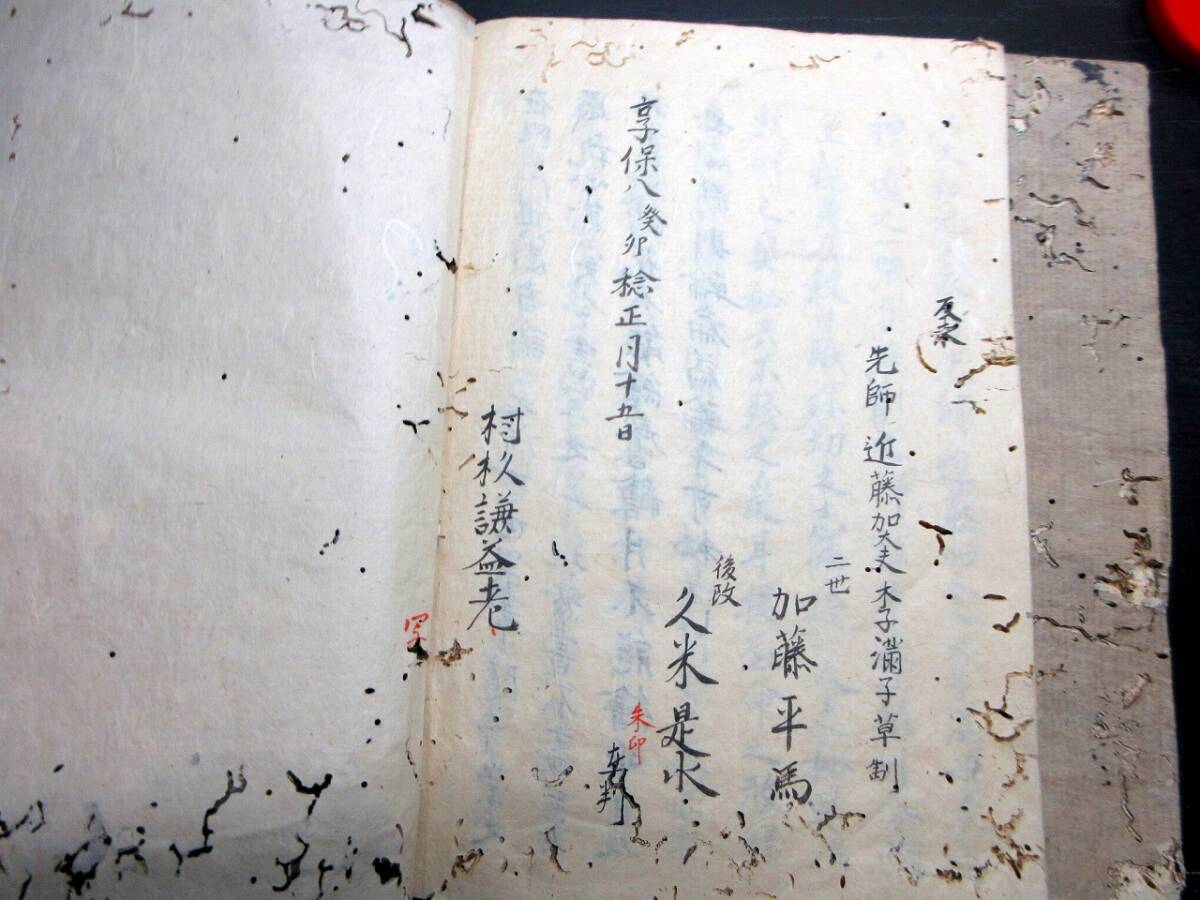 先師近藤加大夫木子満子草制
二世
加藤平馬
後改
久米是水
朱印
在判
享保八癸卯稔正月十五日
村杦謙益老
写